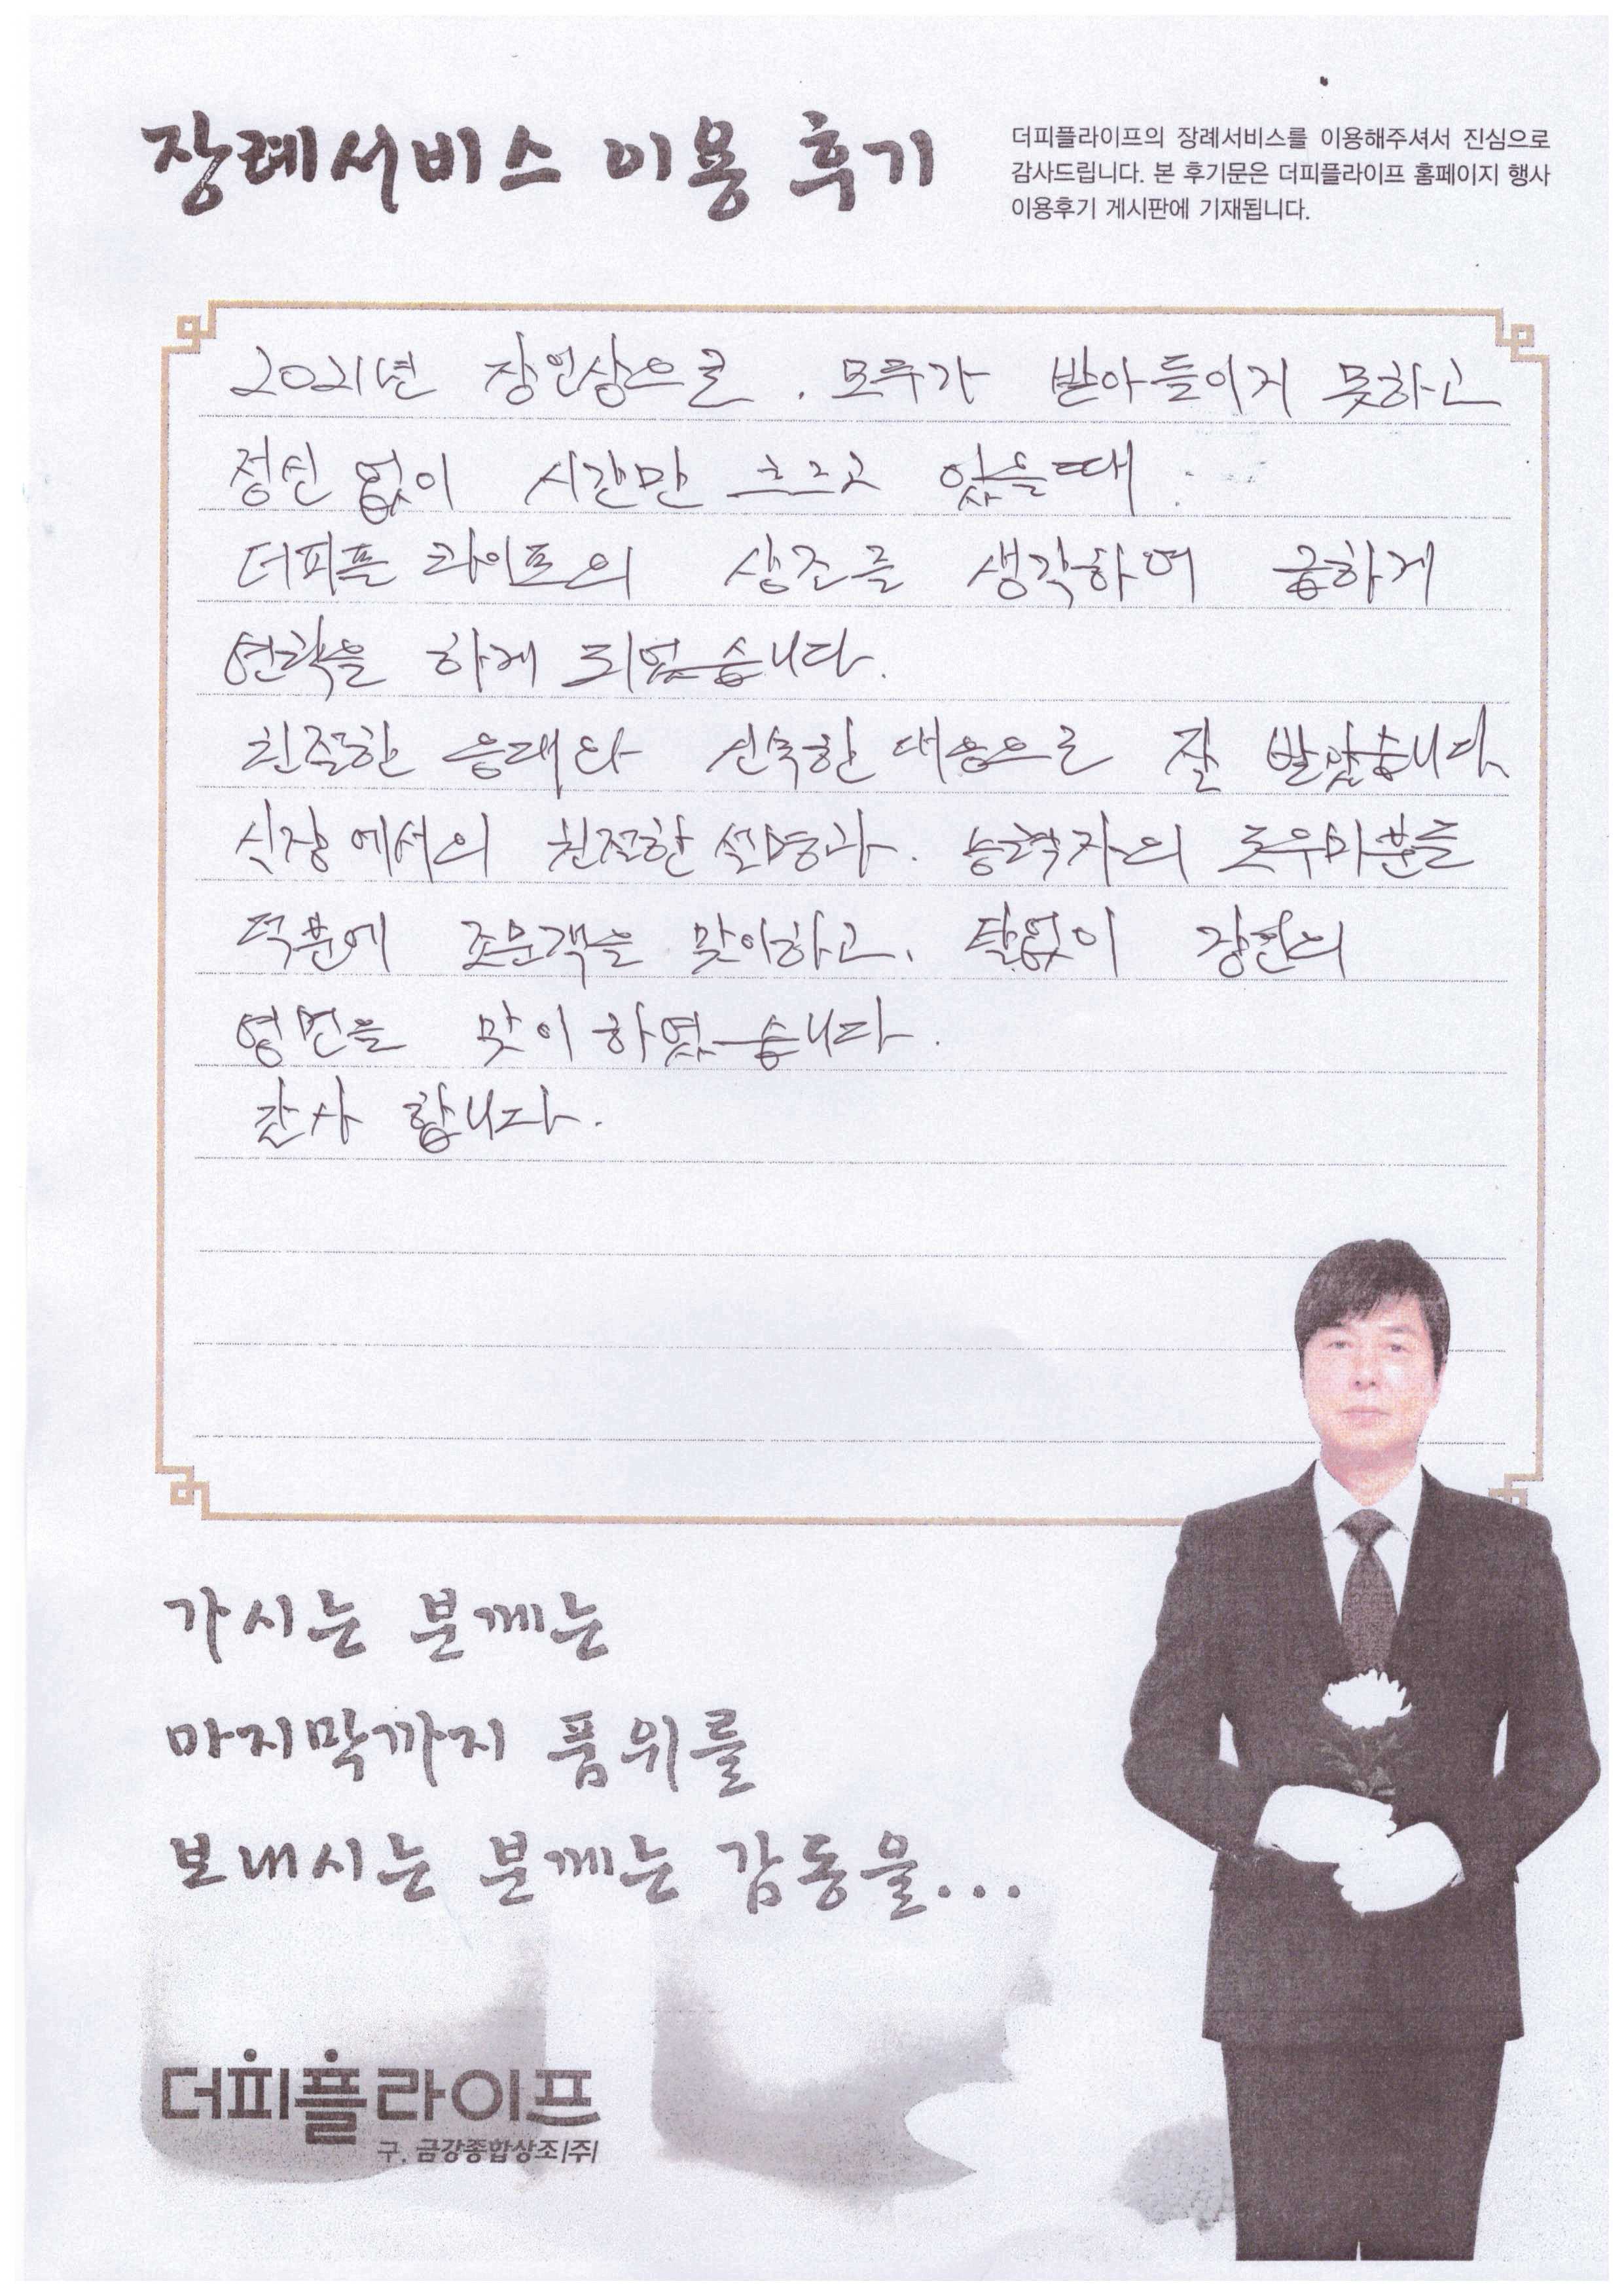 장례서비스 이용 후기
더피플라이프의 장례서비스를 이용해주셔서 진심으로
감사드립니다. 본 후기문은 더피플라이프 홈페이지 행사
이용후기 게시판에 기재됩니다.
2021년 장인상으로. 모두가 받아들이지 못하고
정신 없이 시간만 흐르고 있을때.
더피플 라이프의 상조를 생각하여 급하게
연락을 하게 되었습니다.
친절한 응대와 신속한 대응으로 잘 받았습니다
식장에서의 친절한 설명과. 능력자의 도우미분들
덕분에 조문객을 맞이하고, 탈없이 장인의
영면을 맞이 하였습니다.
감사 합니다.
가시는 분께는
마지막까지 품위를
보내시는 분께는 감동을...
더피플라이프
구. 금강종합상조(주)